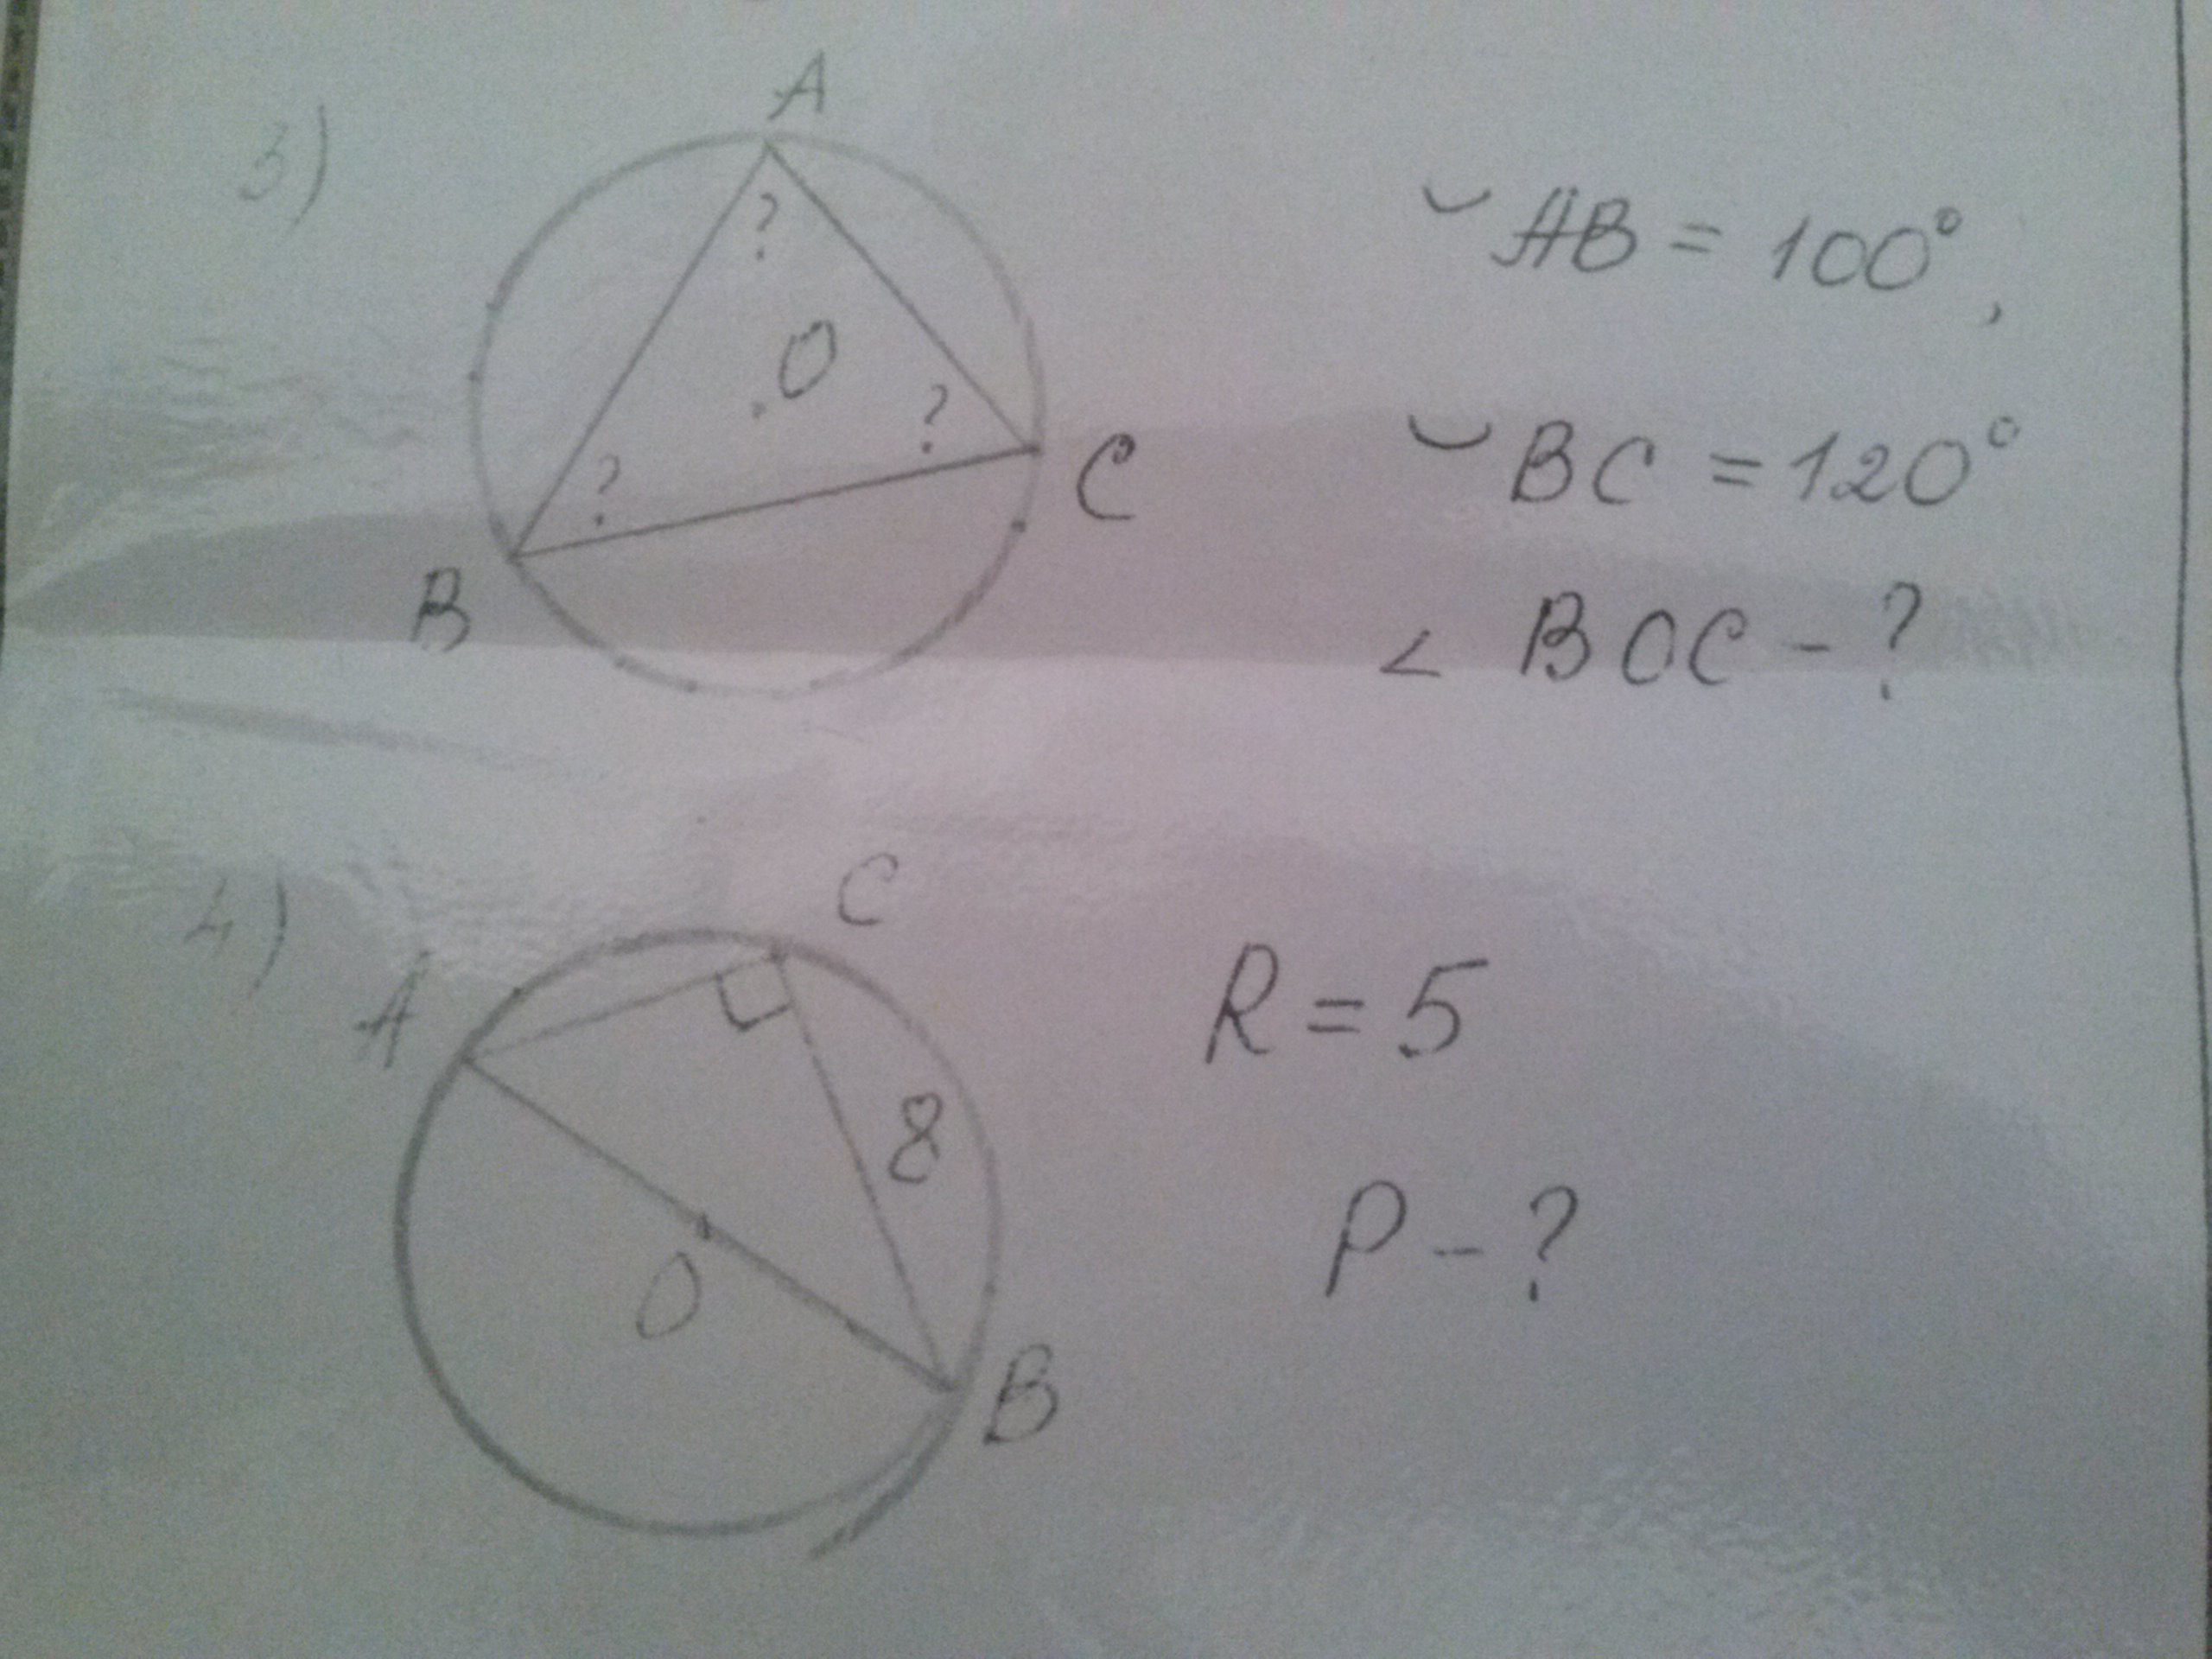 3)
A
?
O
?
?
B
C
◡ AB = 100°,
◡ BC = 120°
∠ BOC - ?
4)
C
A
8
O
B
R = 5
P - ?